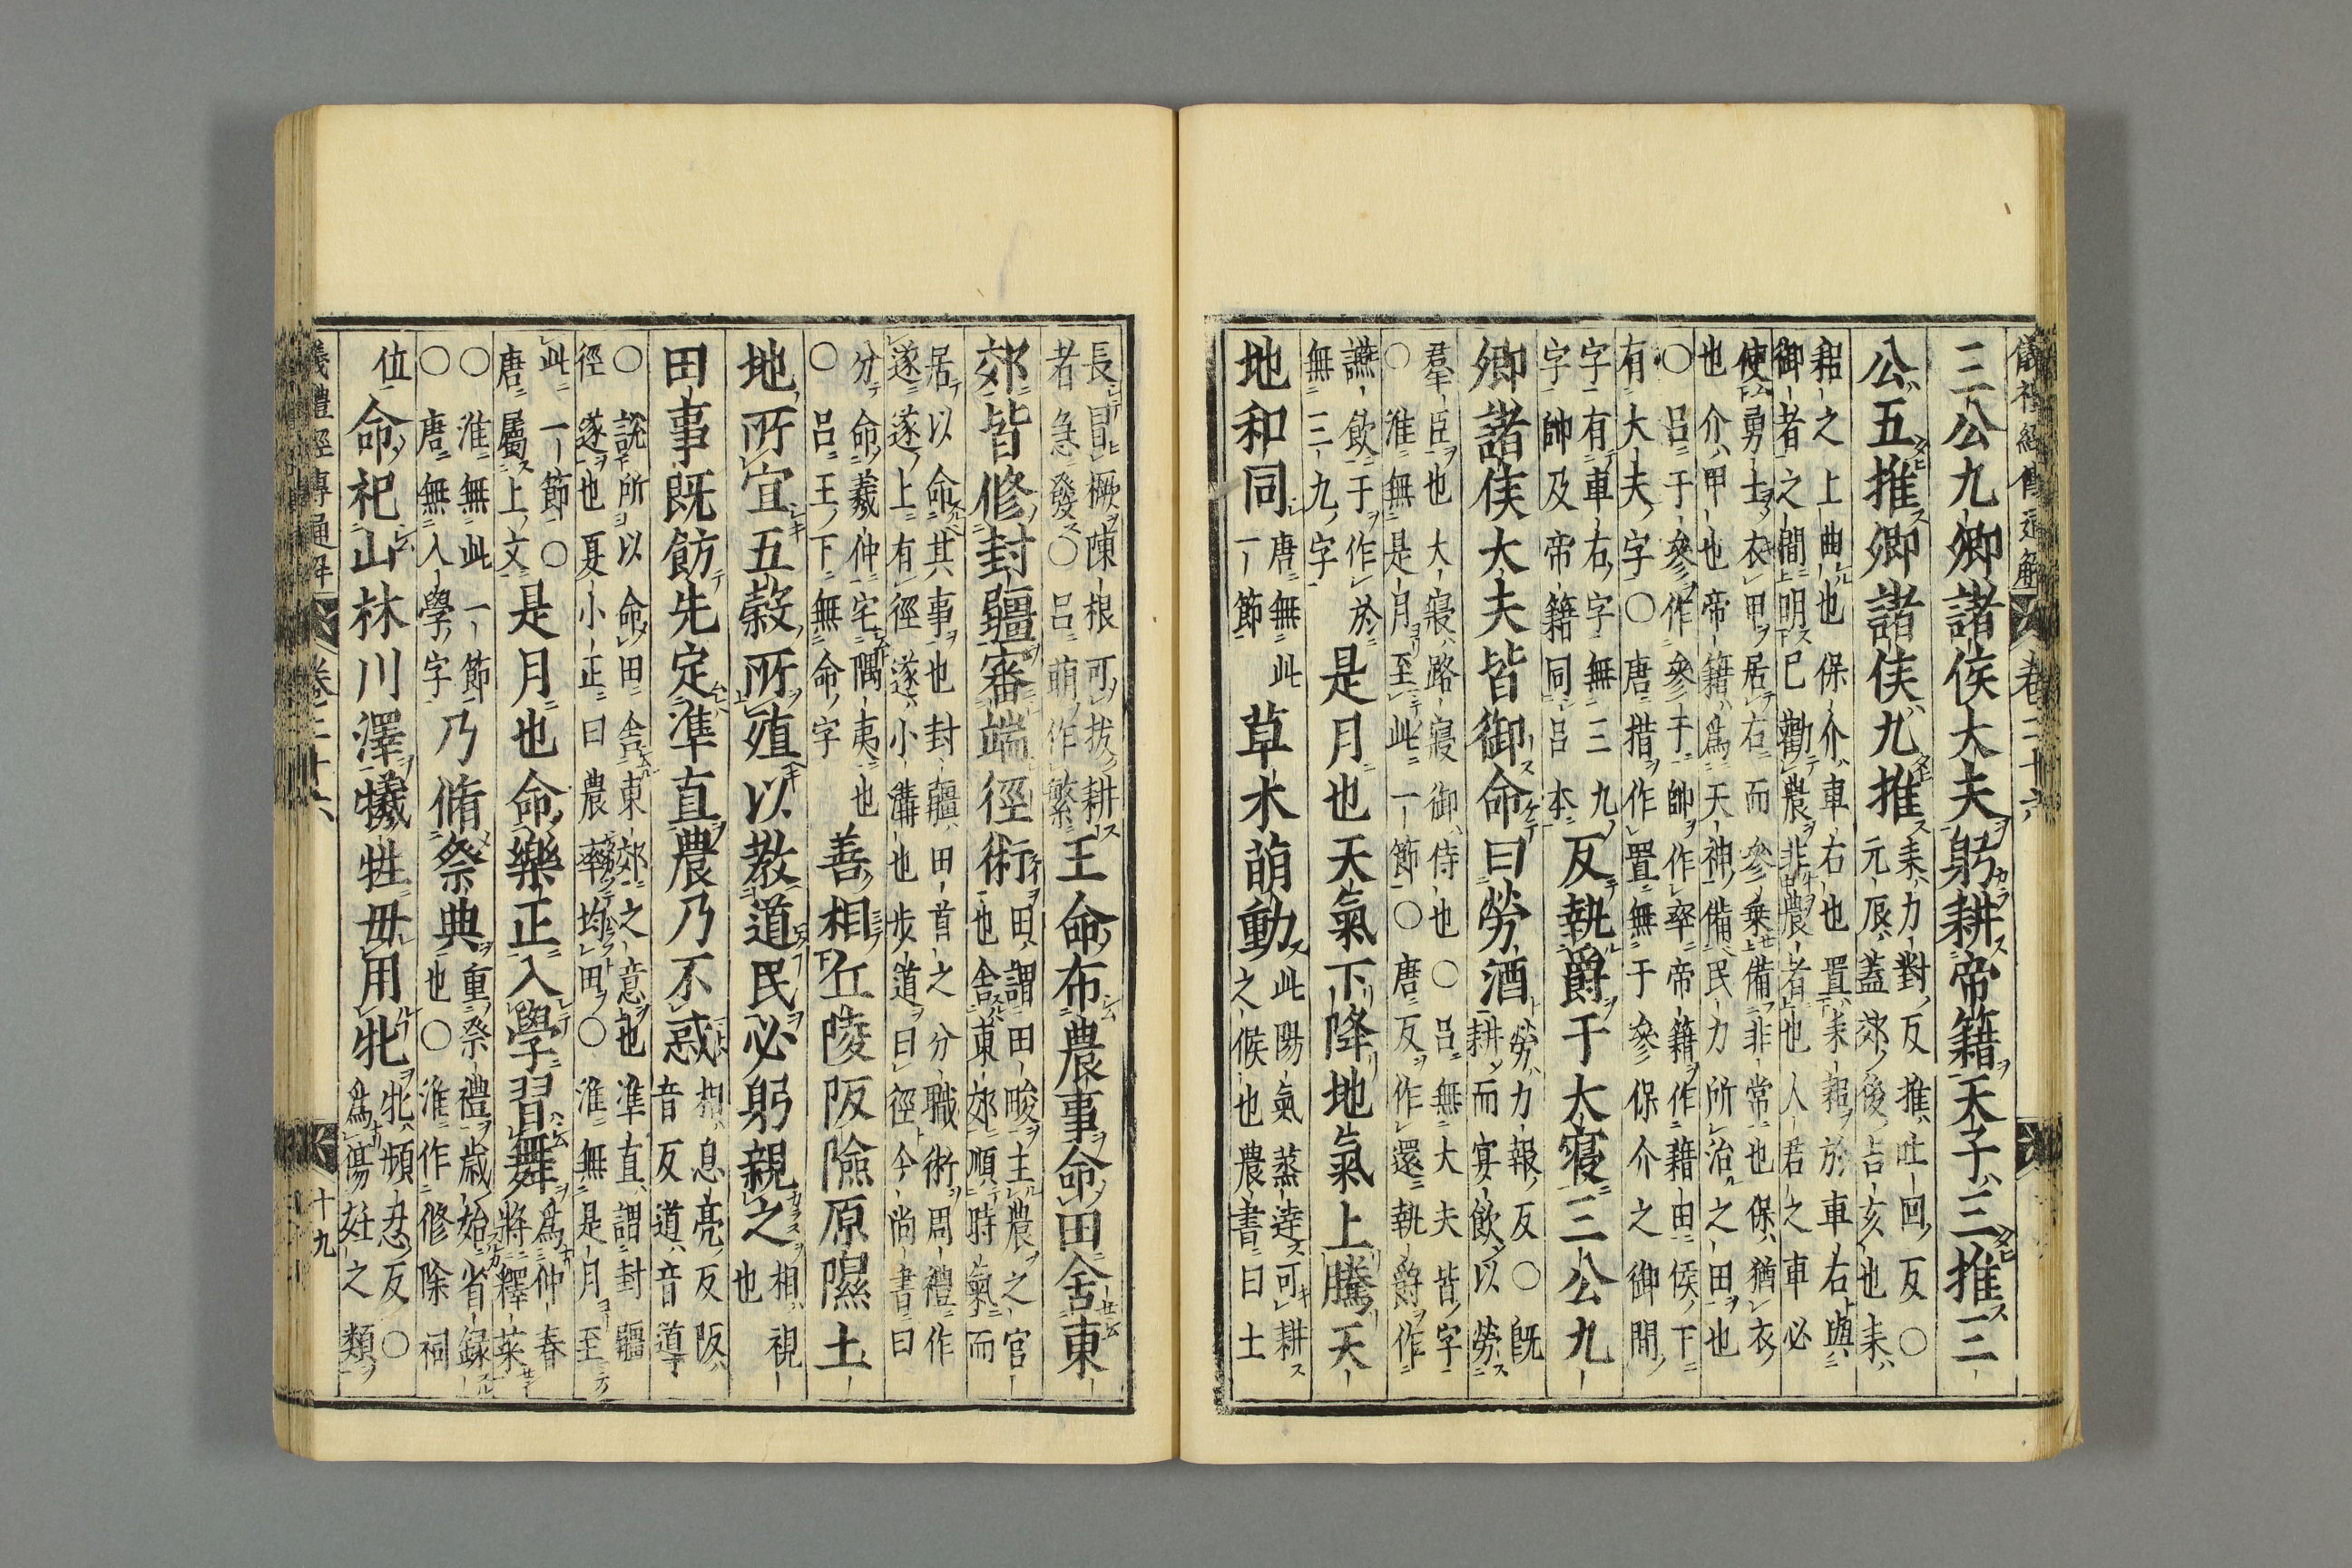 儀禮經傳通解 卷二十六
三公九卿諸侯大夫躬耕帝籍天子三推三
公五推卿諸侯九推 耒力對反推吐回反○
元辰蓋郊後吉亥也耒
耜之上曲也保介車右也置耒耜於車右與
御者之間明已勸農非農者也人君之車必
使勇士衣甲居右而參乘備非常也保猶衣
也介甲也帝籍爲天神備民力所治之田也
○呂于參作參于帥作率帝籍作藉田侯下
有大夫字○唐措作置無于參保介之御間
字有車右字無三九
字帥及帝籍同呂本 反執爵于太寢三公九
卿諸侯大夫皆御命曰勞酒 勞力報反○旣
耕而宴飲以勞
羣臣也大寢路寢御侍也○呂無大夫皆字
○淮無是月至此一節○唐反作還執爵作
讌飲于作於
無三九字 是月也天氣下降地氣上騰天
地和同 唐無此
一節 草木萌動 此陽氣蒸達可耕
之候也農書曰土
長冒橛陳根可拔耕
者急發○呂萌作繁 王命布農事命田舍東
郊皆修封疆審端徑術 田謂田畯主農之官
也舍東郊順時氣而
居以命其事也封疆田首之分職術周禮作
遂遂上有徑遂小溝也步道曰徑今尚書曰
分命羲仲宅隅夷也
○呂王下無命字 善相丘陵阪險原隰土
地所宜五穀所殖以敎道民必躬親之 相視
也
田事旣飭先定準直農乃不惑 相息亮反阪
音反道音導
○說所以命田舍東郊之意也準直謂封疆
徑遂也夏小正曰農率均田○淮無是月至
此一節○
唐屬上文 是月也命樂正入學習舞 爲仲春
將釋菜
○淮無此一節
○唐無入學字 乃脩祭典 重祭禮歲始省録
也○淮作修除祠
位 命祀山林川澤犧牲毋用牝 牝頻忍反○
爲傷妊之類
儀禮經傳通解 卷二十六 十九